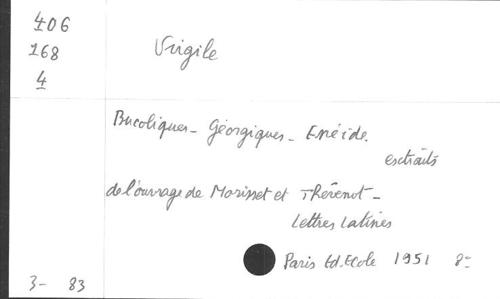 406
168
4
Virgile
Bucoliques - Géorgiques - Enéide.
extraits
de l'ouvrage de Morisset et Thévenot -
Lettres Latines
Paris Ed. Ecole 1951 8°
3- 83